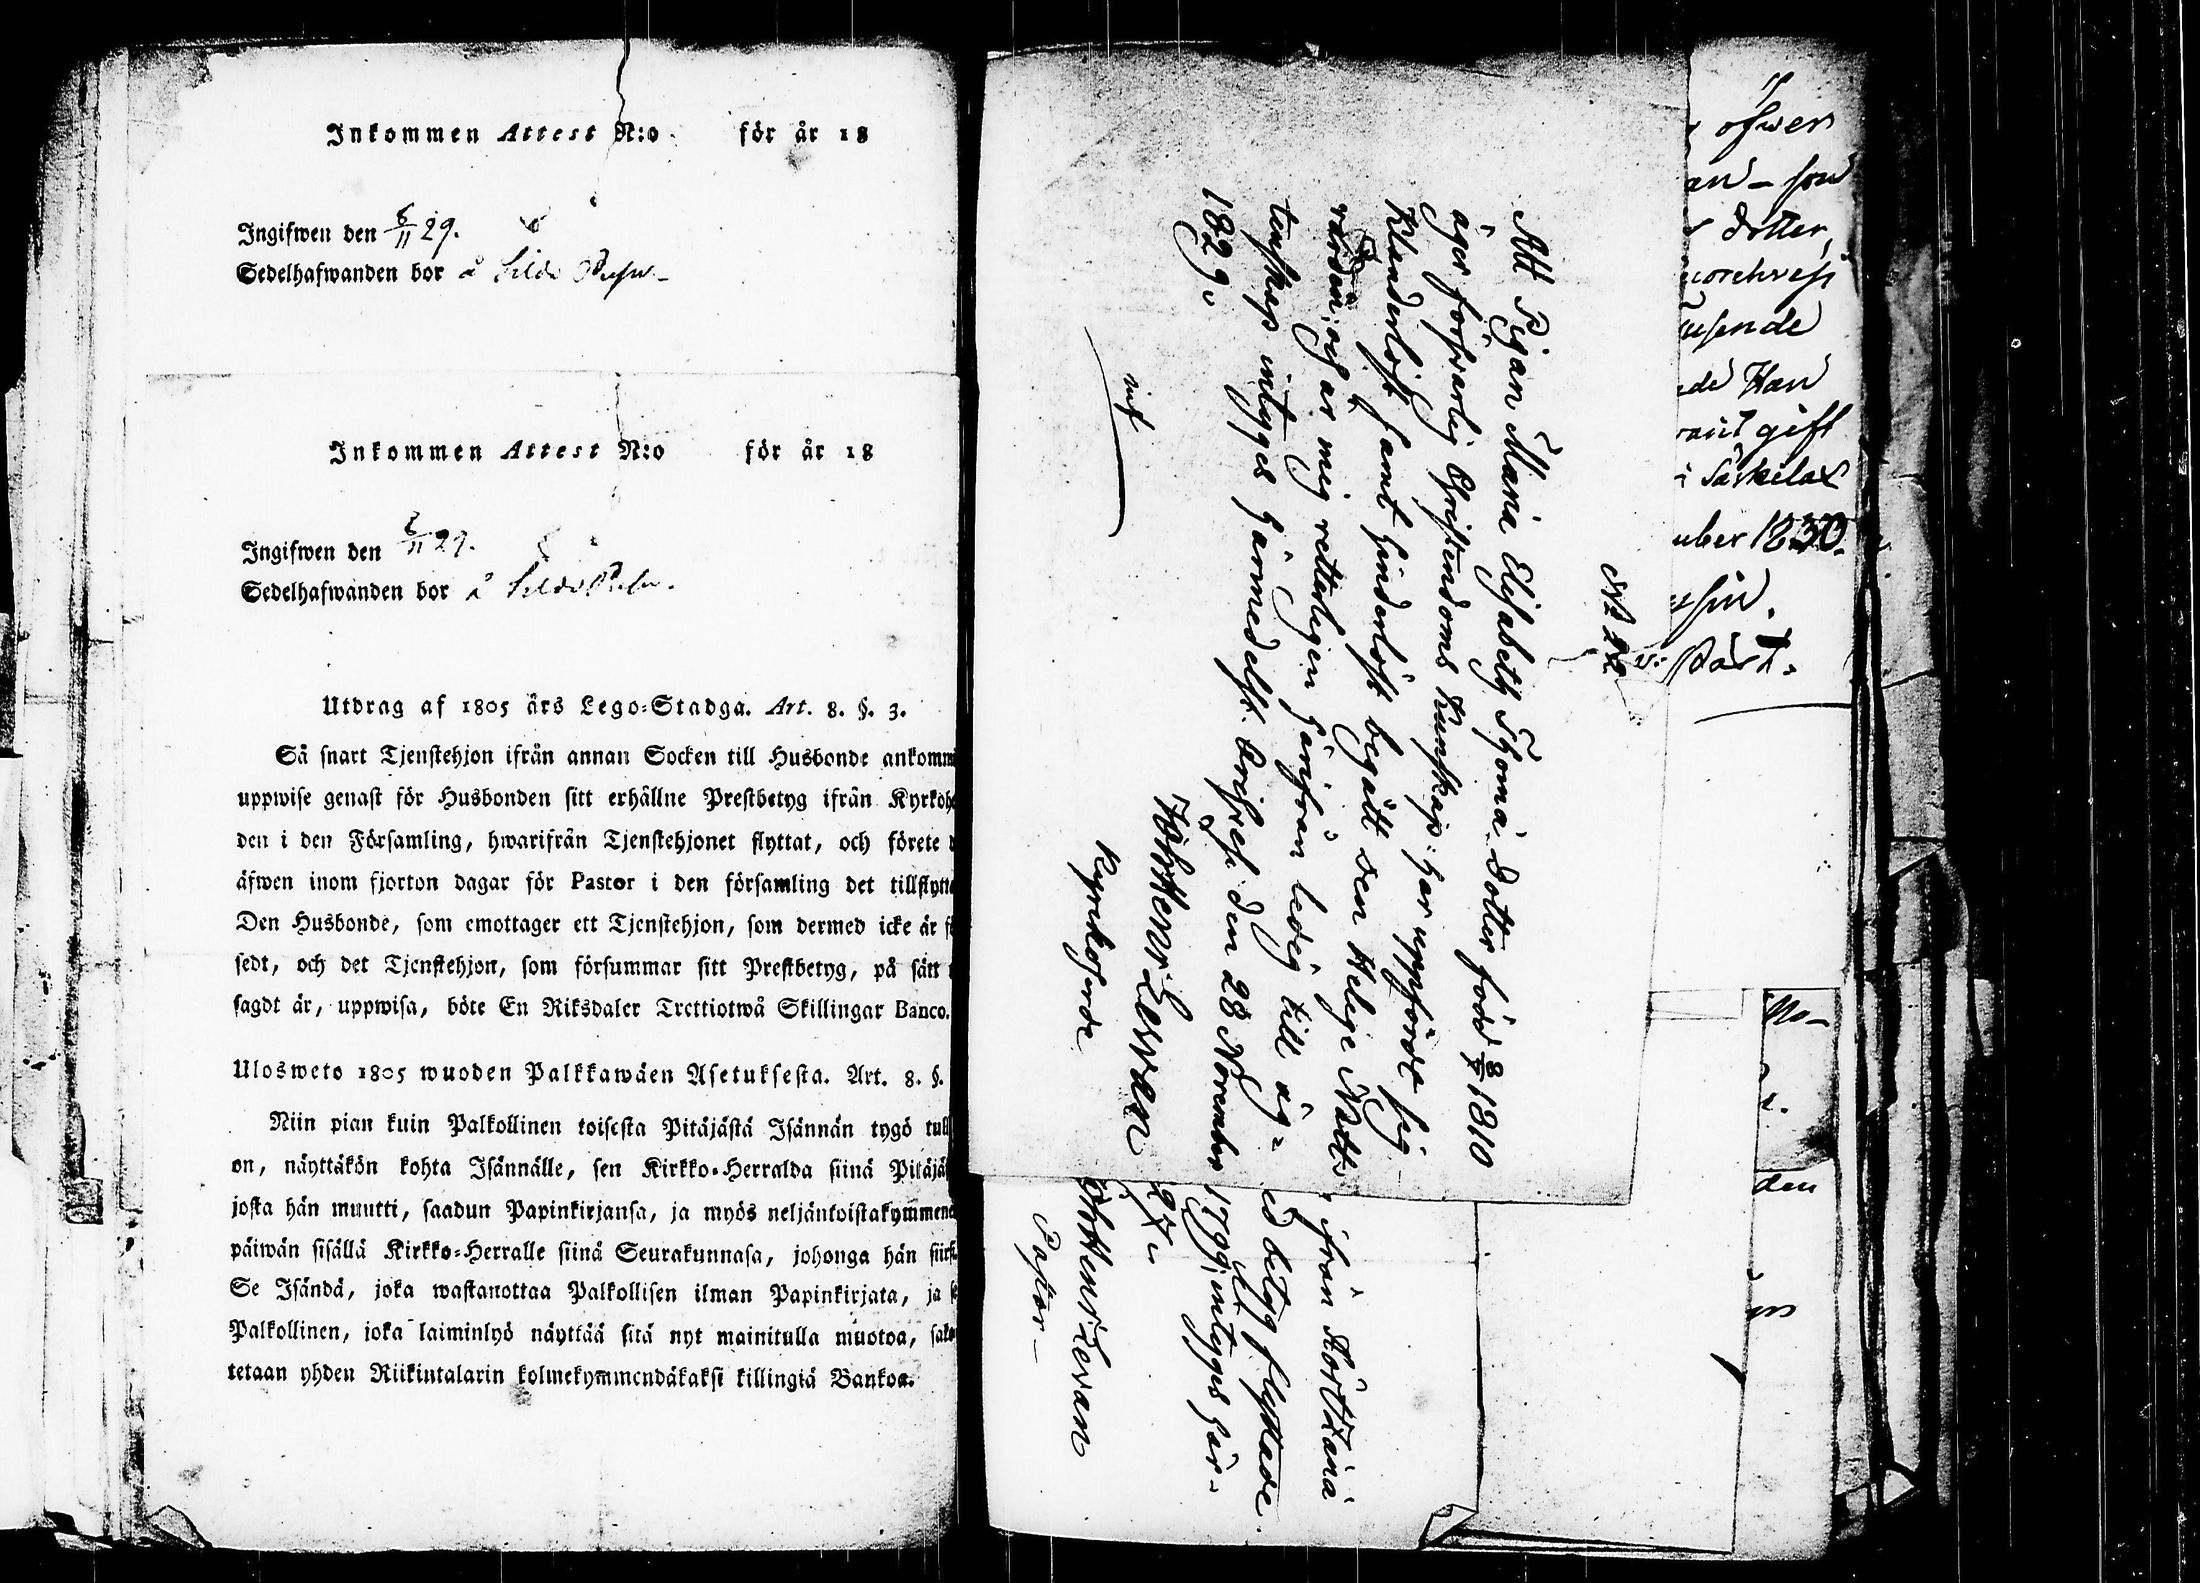 Inkommen Attest N:o för år 18
Ingifwen den 6/11 29.
Sedelhafwanden bor å
Inkommen Attest N:o för år 18
Ingifwen den 6/11 29.
Sedelhafwanden bor å
Utdrag af 1805 års Lego-Stadga. Art. 8. §. 3.
Så snart Tjenstehjon ifrån annan Socken till Husbonde ankomm
uppwise genast för Husbonden sitt erhållne Prestbetyg ifrån Kyrkoh
den i den Församling, hwarifrån Tjenstehjonet flyttat, och förete
äfwen inom fjorton dagar för Pastor i den församling det tillflytt
Den Husbonde, som emottager ett Tjenstehjon, som dermed icke är f
sedt, och det Tjenstehjon, som försummar sitt Prestbetyg, på sätt
sagdt är, uppwisa, böte En Riksdaler Trettiotwå Skillingar Banco.
Ulosweto 1805 wuoden Palkkawäen Asetuksesta. Art. 8. §.
Niin pian kuin Palkollinen toisesta Pitäjästä Isännän tygö tull
on, näyttäkön kohta Isännälle, sen Kirkko-Herralda siinä Pitäjä
josta hän muutti, saadun Papinkirjansa, ja myös neljäntoistakymmene
päiwän sisällä Kirkko-Herralle siinä Seurakunnasa, johonga hän siirt
Se Isändä, joka wastanottaa Palkollisen ilman Papinkirjata, ja s
Palkollinen, joka laiminlyö näyttää sitä nyt mainitulla muotoa, sako
tetaan yhden Riikintalarin kolmekymmendäkaksi killingiä Bankoa.
N:o 22
Att Pigan Maria Elisabeth Thomä dotter född 8/9 1810
äger förswarlig Christendoms kunskap: har uppfördt sig
Klanderlöst samt hinderlöst begått den Helige Natt-
warden; och är mig wetterligen härifrån ledig till äg-
tenskap intygges härmedelst. den 28 November
1829.
Joh: Henr:
Kyrkoherde
från
ed betyg flyttade
1799; intyges här-
27.
Joh: Henr:
Pastor
öfwer
an – son
dotter,
usende
ade Han
warit gift
i Särkilax
mber 1830.
Past.
Ma-
den